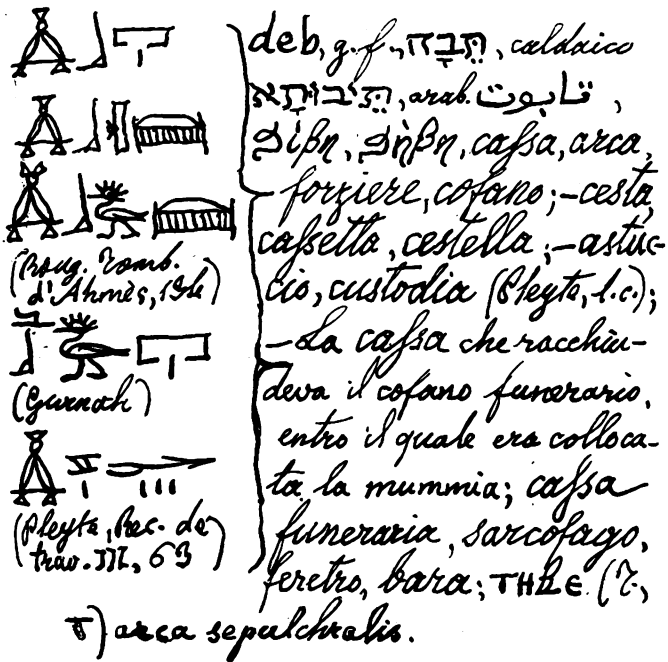 (Roug. Tomb.
d'Ahmès,
(Gurnah)
(Pleyte, Rec. de
trav. III, 63)
deb, g. f., תֵּבָה, caldaico
תֵּיבוּתָא, arab. تابوت,
θίβη, θὴβη, cassa, arca,
forziere, cofano; – cesta,
cassetta, cestella; – astuc-
cio, custodia (Pleyte, l. c.);
– La cassa che racchiu-
deva il cofano funerario,
entro il quale era colloca-
ta la mummia; cassa
funeraria, sarcofago,
feretro, bara; ⲧⲏⲃⲉ
arca sepulchralis.